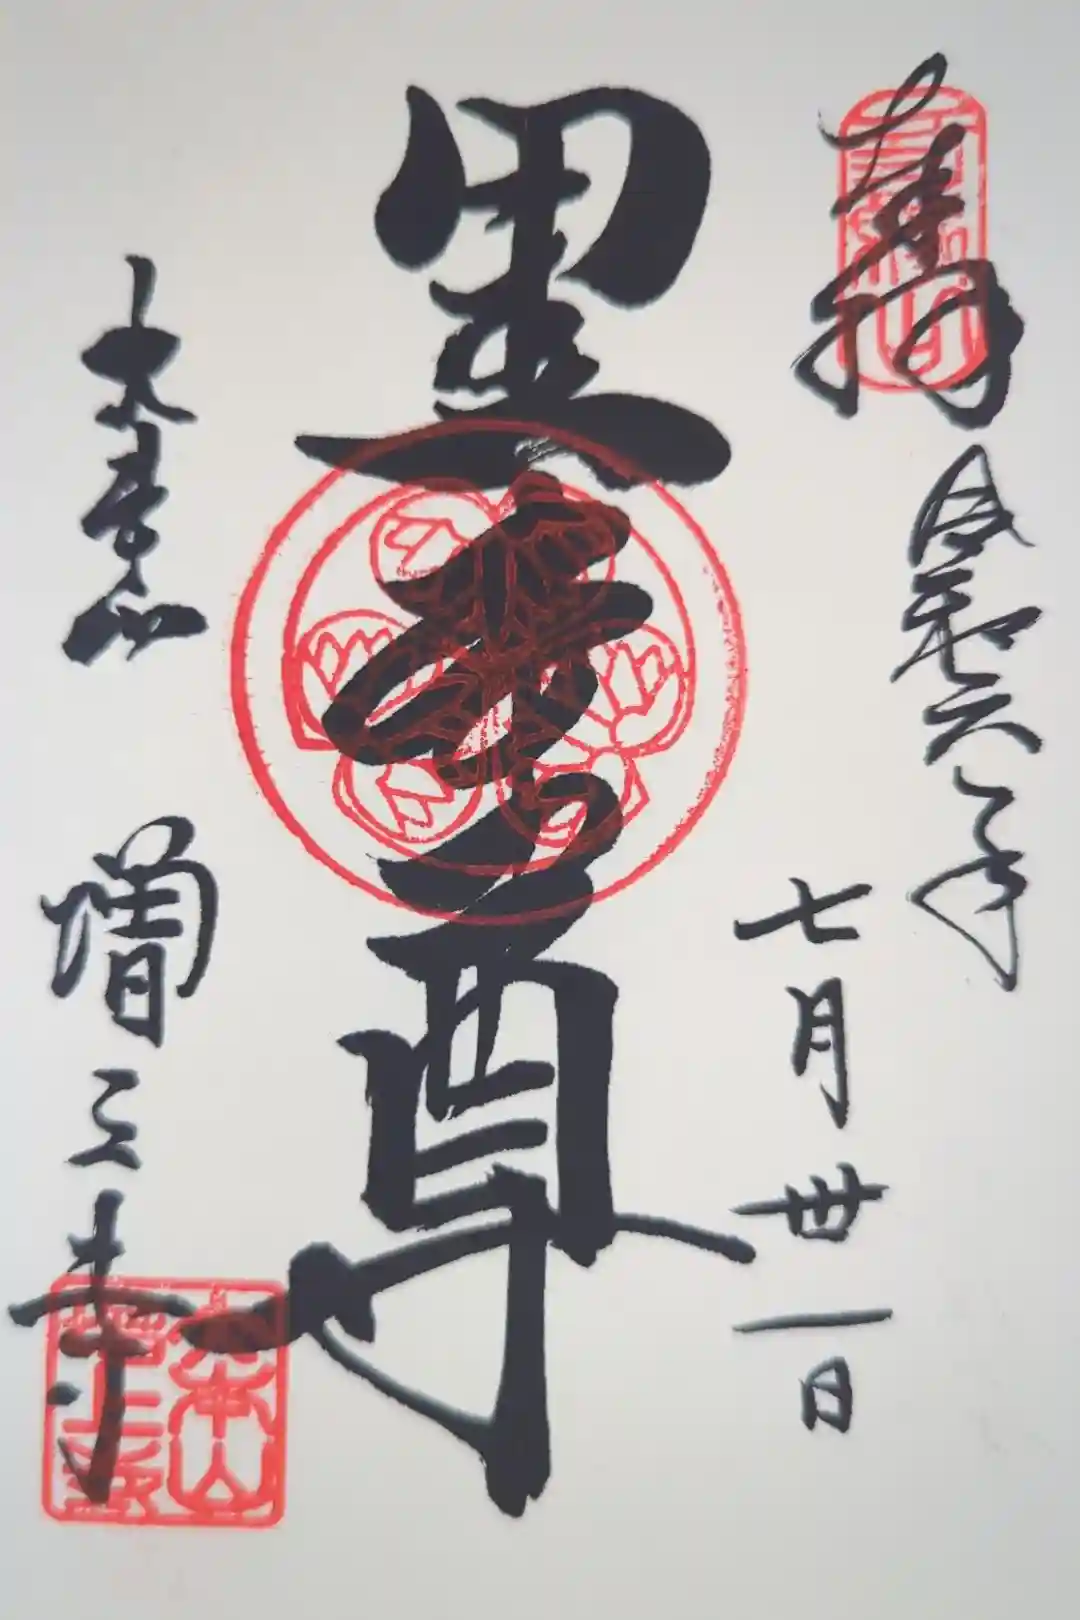 奉拝 令和六年
七月卅一日
黒本尊
大本山 増上寺
大本山
増上寺